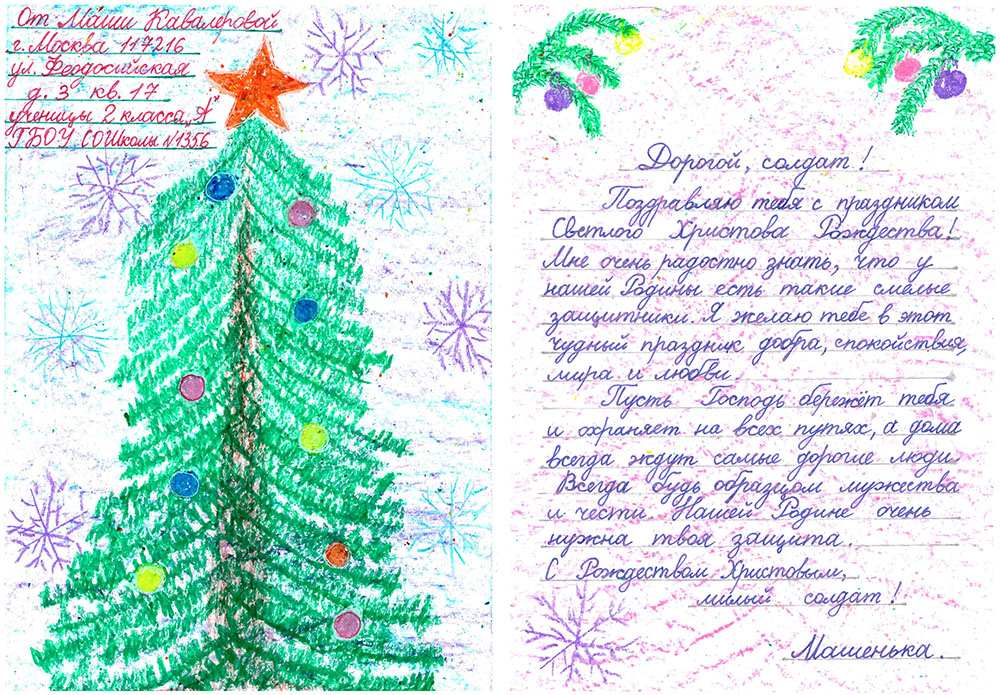 От Маши Кавалеровой
г. Москва 117216
ул. Феодосийская
д. 3 кв. 17
ученицы 2 класса „А"
ГБОУ СОШколы №1356
Дорогой, солдат!
Поздравляю тебя с праздником
Светлого Христова Рождества!
Мне очень радостно знать, что у
нашей Родины есть такие смелые
защитники. Я желаю тебе в этот
чудный праздник добра, спокойствия,
мира и любви.
Пусть Господь бережёт тебя
и охраняет на всех путях, а дома
всегда ждут самые дорогие люди.
Всегда будь образцом мужества
и чести. Нашей Родине очень
нужна твоя защита.
С Рождеством Христовым,
милый солдат!
Машенька.